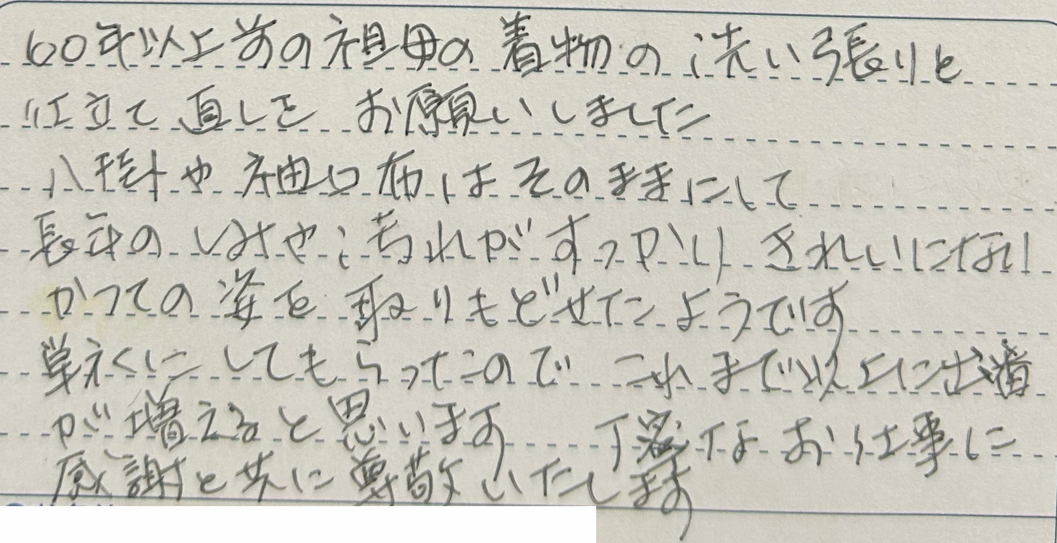 60年以上前の祖母の着物の洗い張りと
仕立て直しを お願いしました
八掛や袖口布はそのままにして
長年のしみや汚れがすっかり きれいになり
かつての姿を取りもどせたようです
単衣にしてもらったので これまで以上に出番
が増えると思います 丁寧なお仕事に
感謝と共に尊敬いたします